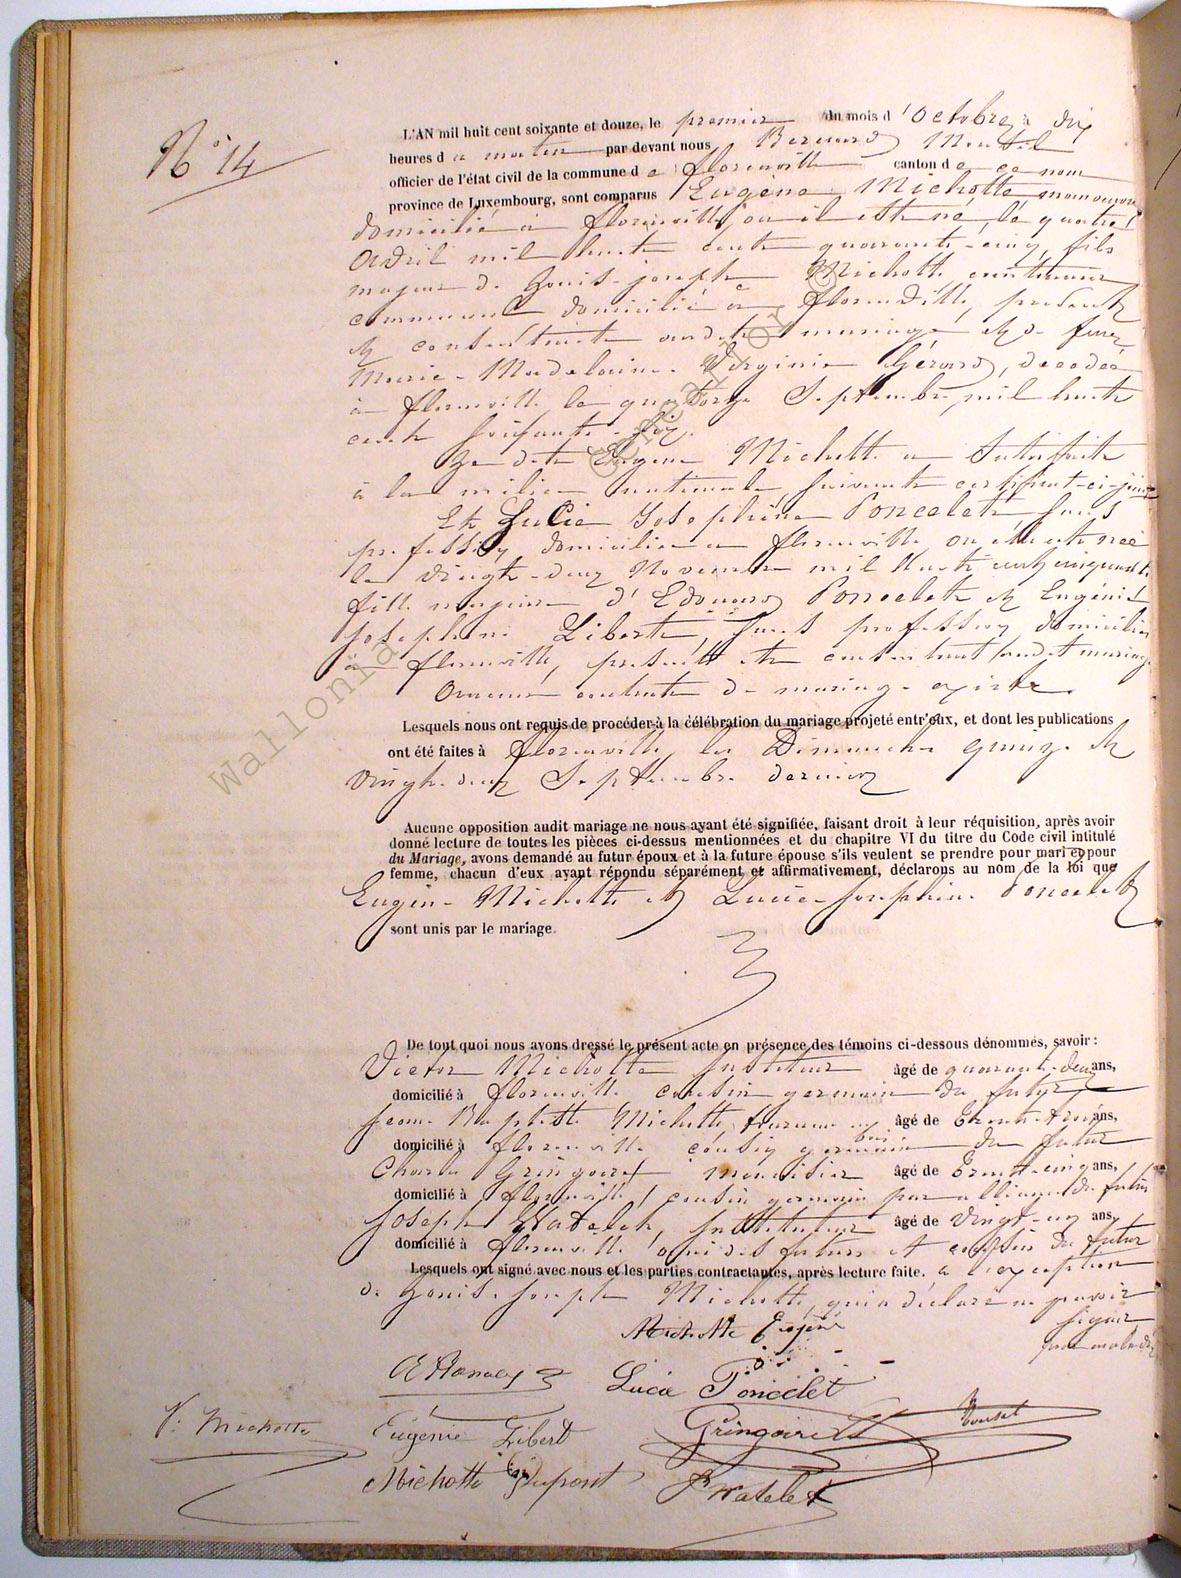 N° 14
L'AN mil huit cent soixante et douze, le premier du mois d'octobre à dix
heures du matin par devant nous Bernard
officier de l'état civil de la commune de florenville canton de ce nom
province de Luxembourg, sont comparus Eugène Michotte manoeuvre
domicilié à florenville, où il est né, le quatre
avril mil huit cent quarante-cinq, fils
majeur de Louis-joseph Michotte cantinier
communal domicilié à florenville, présent
et consentant audit mariage et de feue
Marie-Madelaine-Virginie Gérard, décédée
à florenville, le quatorze Septembre mil huit
cent soixante-six.
Le dit Eugène Michotte a Satisfait
à la milice nationale suivant certificat-ci-joint
Et Lucie Josephine Poncelet sans
profession domiciliée à florenville où elle est née
le vingt-deux Novembre mil huit cent cinquante
fille majeure d'Edouard Poncelet et Eugénie
Josephine Libert, sans profession domiciliés
à florenville, présents et consentant audit mariage
Aucun contrat de mariage existe.
Lesquels nous ont requis de procéder à la célébration du mariage projeté entr'eux, et dont les publications
ont été faites à florenville les Dimanches quinze et
vingt-deux Septembre dernier
Aucune opposition audit mariage ne nous ayant été signifiée, faisant droit à leur réquisition, après avoir
donné lecture de toutes les pièces ci-dessus mentionnées et du chapitre VI du titre du Code civil intitulé
du Mariage, avons demandé au futur époux et à la future épouse s'ils veulent se prendre pour mari et pour
femme, chacun d'eux ayant répondu séparément et affirmativement, déclarons au nom de la loi que
Eugène Michotte et Lucie-Josephine Poncelet
sont unis par le mariage
De tout quoi nous avons dressé le présent acte en présence des témoins ci-dessous dénommés, savoir :
Victor Michotte Instituteur âgé de quarante-deux ans,
domicilié à florenville cousin germain du futur
Jean Baptiste Michotte âgé de trente-trois ans,
domicilié à florenville cousin germain du futur
Charles Gringoire menuisier âgé de trente-cinq ans,
domicilié à florenville, cousin germain par alliance du futur
Joseph Watelet, Instituteur âgé de vingt-un ans,
domicilié à florenville ami des futurs et cousin du futur
Lesquels ont signé avec nous et les parties contractantes, après lecture faite. à l'exception
de Louis-Joseph Michotte, qui a déclaré ne pouvoir
signer
pour maladie
Michotte Eugène
Lucie Poncelet
V. Michotte
Eugénie Libert
Gringoire
Michotte Dupont
J. Watelet
Wallonia
Genealor ©